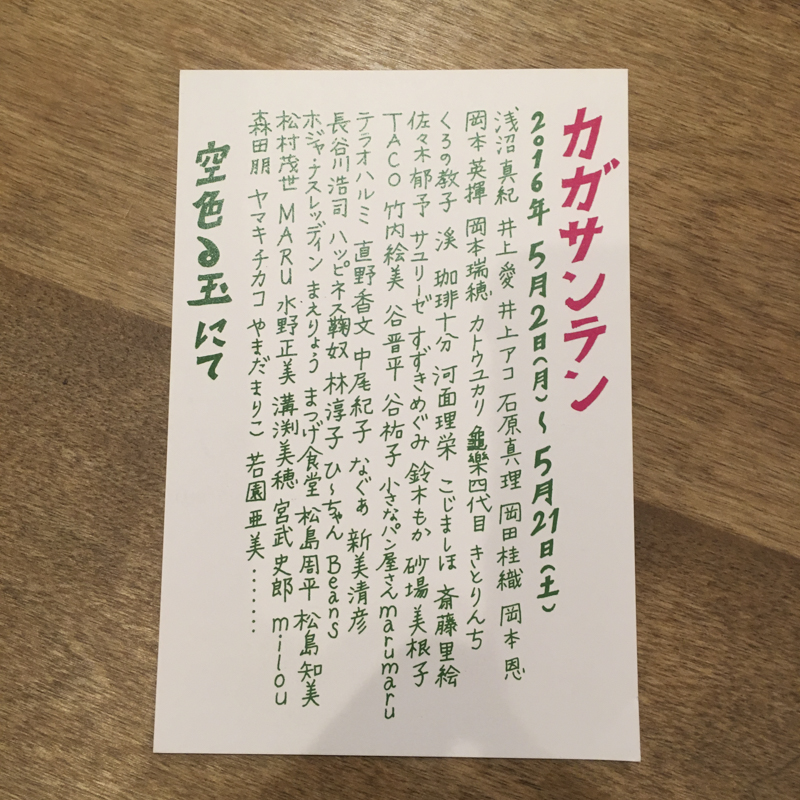 カガサンテン
2016年 5月2日(月)～5月21日(土)
浅沼真紀 井上愛 井上アコ 石原真理 岡田桂織 岡本恩
岡本英揮 岡本瑞穂 カトウユカリ 龜樂四代目 きとりんち
くろの教子 渓 珈琲十分 河面理栄 こじましほ 斎藤里絵
佐々木郁予 サユリーゼ すずきめぐみ 鈴木もか 砂場美根子
TACO 竹内絵美 谷晋平 谷祐子 小さなパン屋さんmarumaru
テラオハルミ 直野香文 中尾紀子 なぐあ 新美清彦
長谷川浩司 ハッピネス鞠奴 林淳子 ひ～ちゃん Beans
ホジャ・ナスレッディン まえりょう まつげ食堂 松島周平 松島知美
松村茂世 MARU 水野正美 溝渕美穂 宮武史郎 milou
森田朋 ヤマキチカコ やまだまりこ 若園亜美・・・・・・・
空色の玉にて